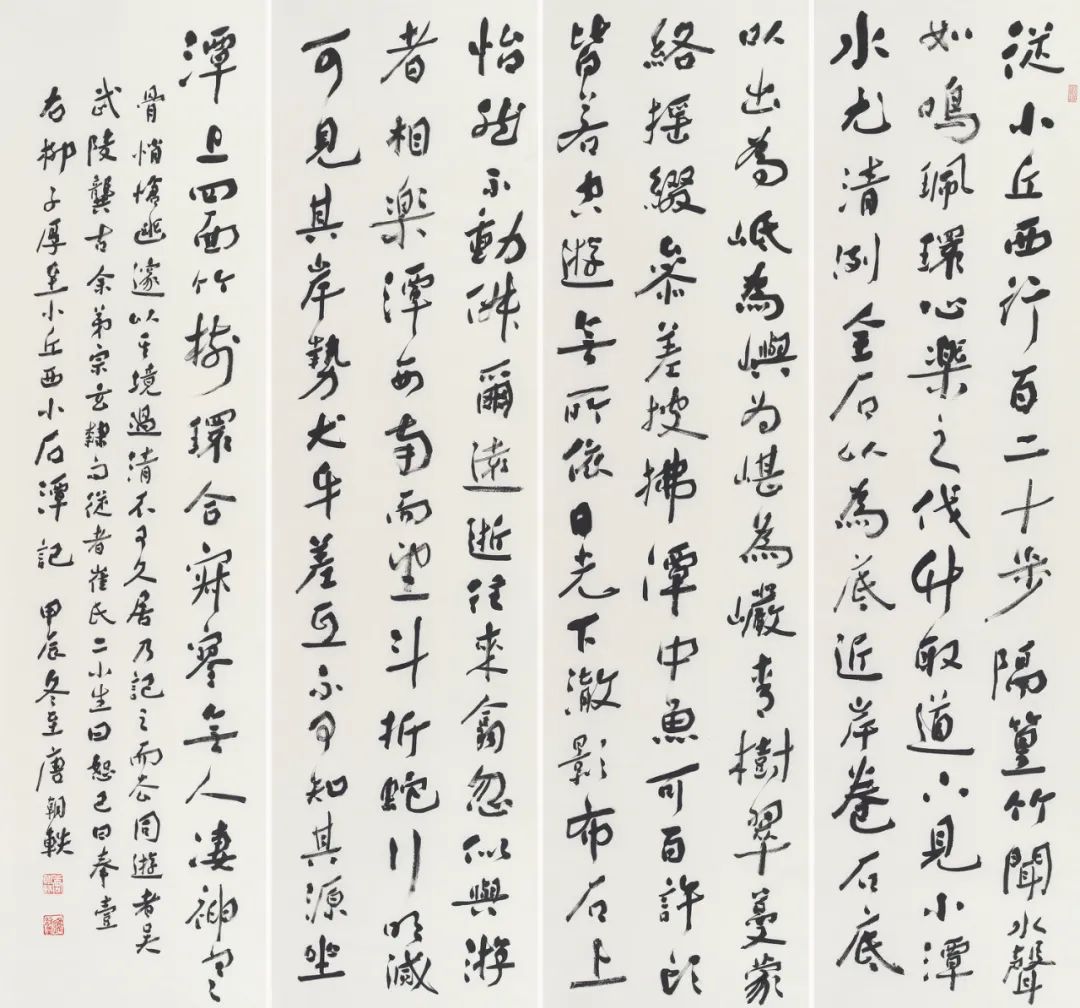 從小丘西行百二十步隔篁竹聞水聲
如鳴珮環心樂之伐竹取道下見小潭
水尤清冽全石以為底近岸卷石底
以出為坻為嶼為嵁為巖青樹翠蔓蒙
絡搖綴參差披拂潭中魚可百許頭
皆若空遊無所依日光下澈影布石上
怡然不動俶爾遠逝往來翕忽似與游
者相樂潭西南而望斗折蛇行明滅
可見其岸勢犬牙差互不可知其源坐
潭上四面竹樹環合寂寥無人凄神寒
骨悄愴幽邃以其境過清不可久居乃記之而去同遊者吳
武陵龔古余弟宗玄隸而從者崔氏二小生曰恕己曰奉壹
右柳子厚至小丘西小石潭記 甲辰冬至唐朝軼